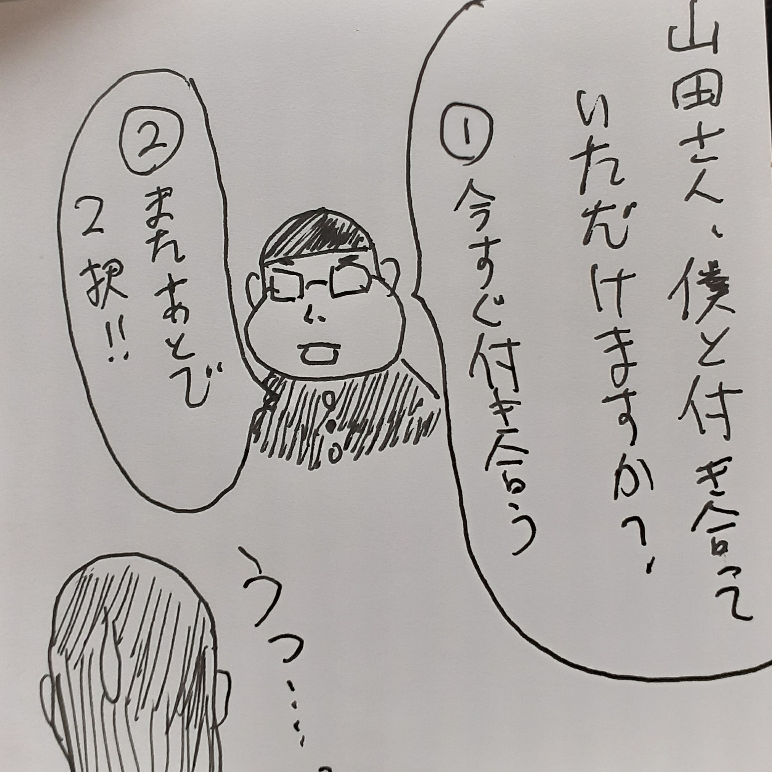 山田さん、僕と付き合って
いただけますか?
① 今すぐ付き合う
② またあとで
2択!!
うっ……